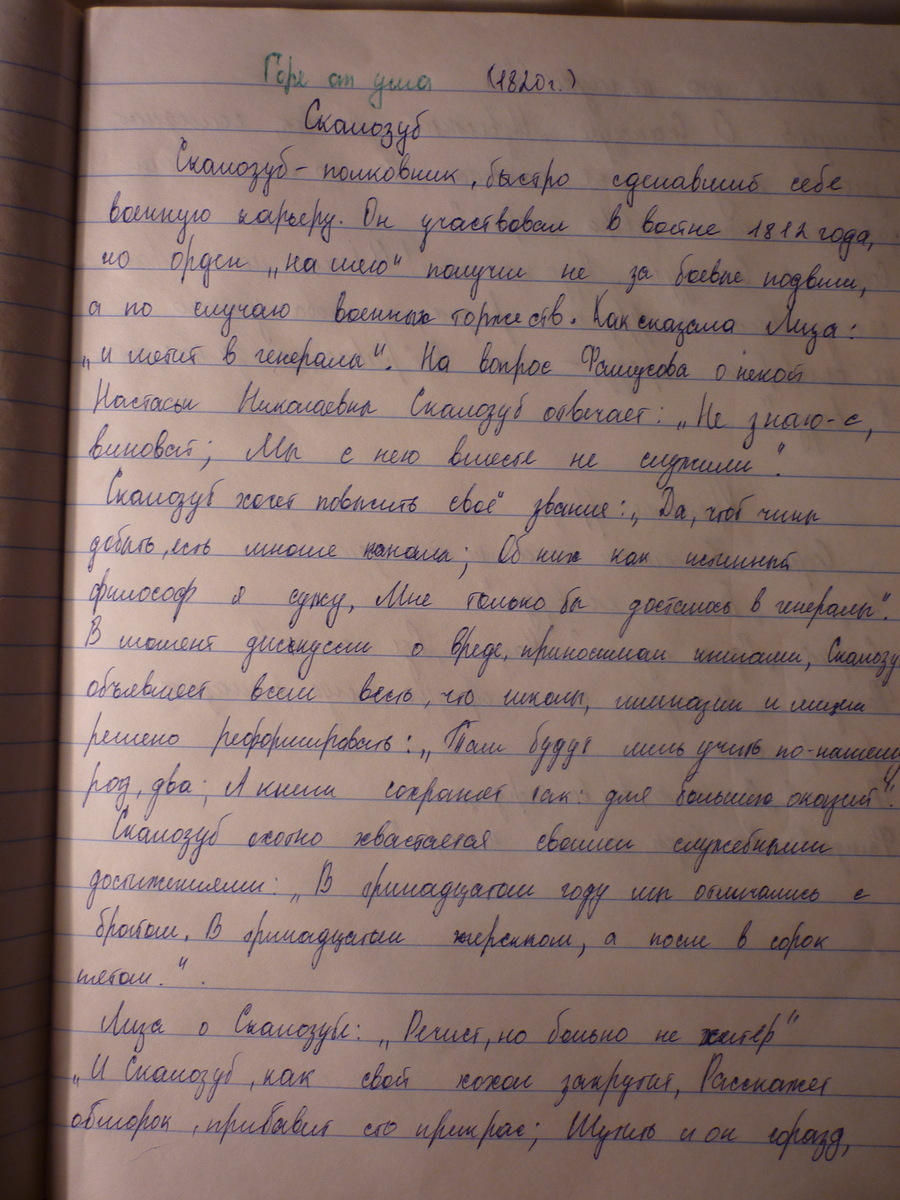 Горе от ума (1820г.)
Скалозуб
Скалозуб – полковник, быстро сделавший себе
военную карьеру. Он участвовал в войне 1812 года,
но орден „на шею" получил не за боевые подвиги,
а по случаю военных торжеств. Как сказала Лиза:
„и метит в генералы". На вопрос Фамусова о некой
Настасьи Николаевны Скалозуб отвечает: „Не знаю-с,
виноват; Мы с нею вместе не служили".
Скалозуб хочет повысить своё звание: „Да, чтоб чины
добыть, есть многие каналы; Об них как истинный
философ я сужу, Мне только бы досталось в генералы".
В момент дискуссии о вреде, приносимом книгами, Скалозуб
объявляет всем весть, что школы, гимназии и лицеи
решено реформировать: „Там будут лишь учить по-нашему
раз, два; А книги сохранят так: для больших оказий".
Скалозуб охотно хвастается своими служебными
достижениями: „В тринадцатом году мы отличались с
братом. В тринадцатом егерском, а после в сорок
пятом.".
Лиза о Скалозубе: „Речист, но больно не хитёр"
„И Скалозуб, как свой хохол закрутит, Расскажет
обморок, прибавит сто прикрас; Шутить и он горазд,